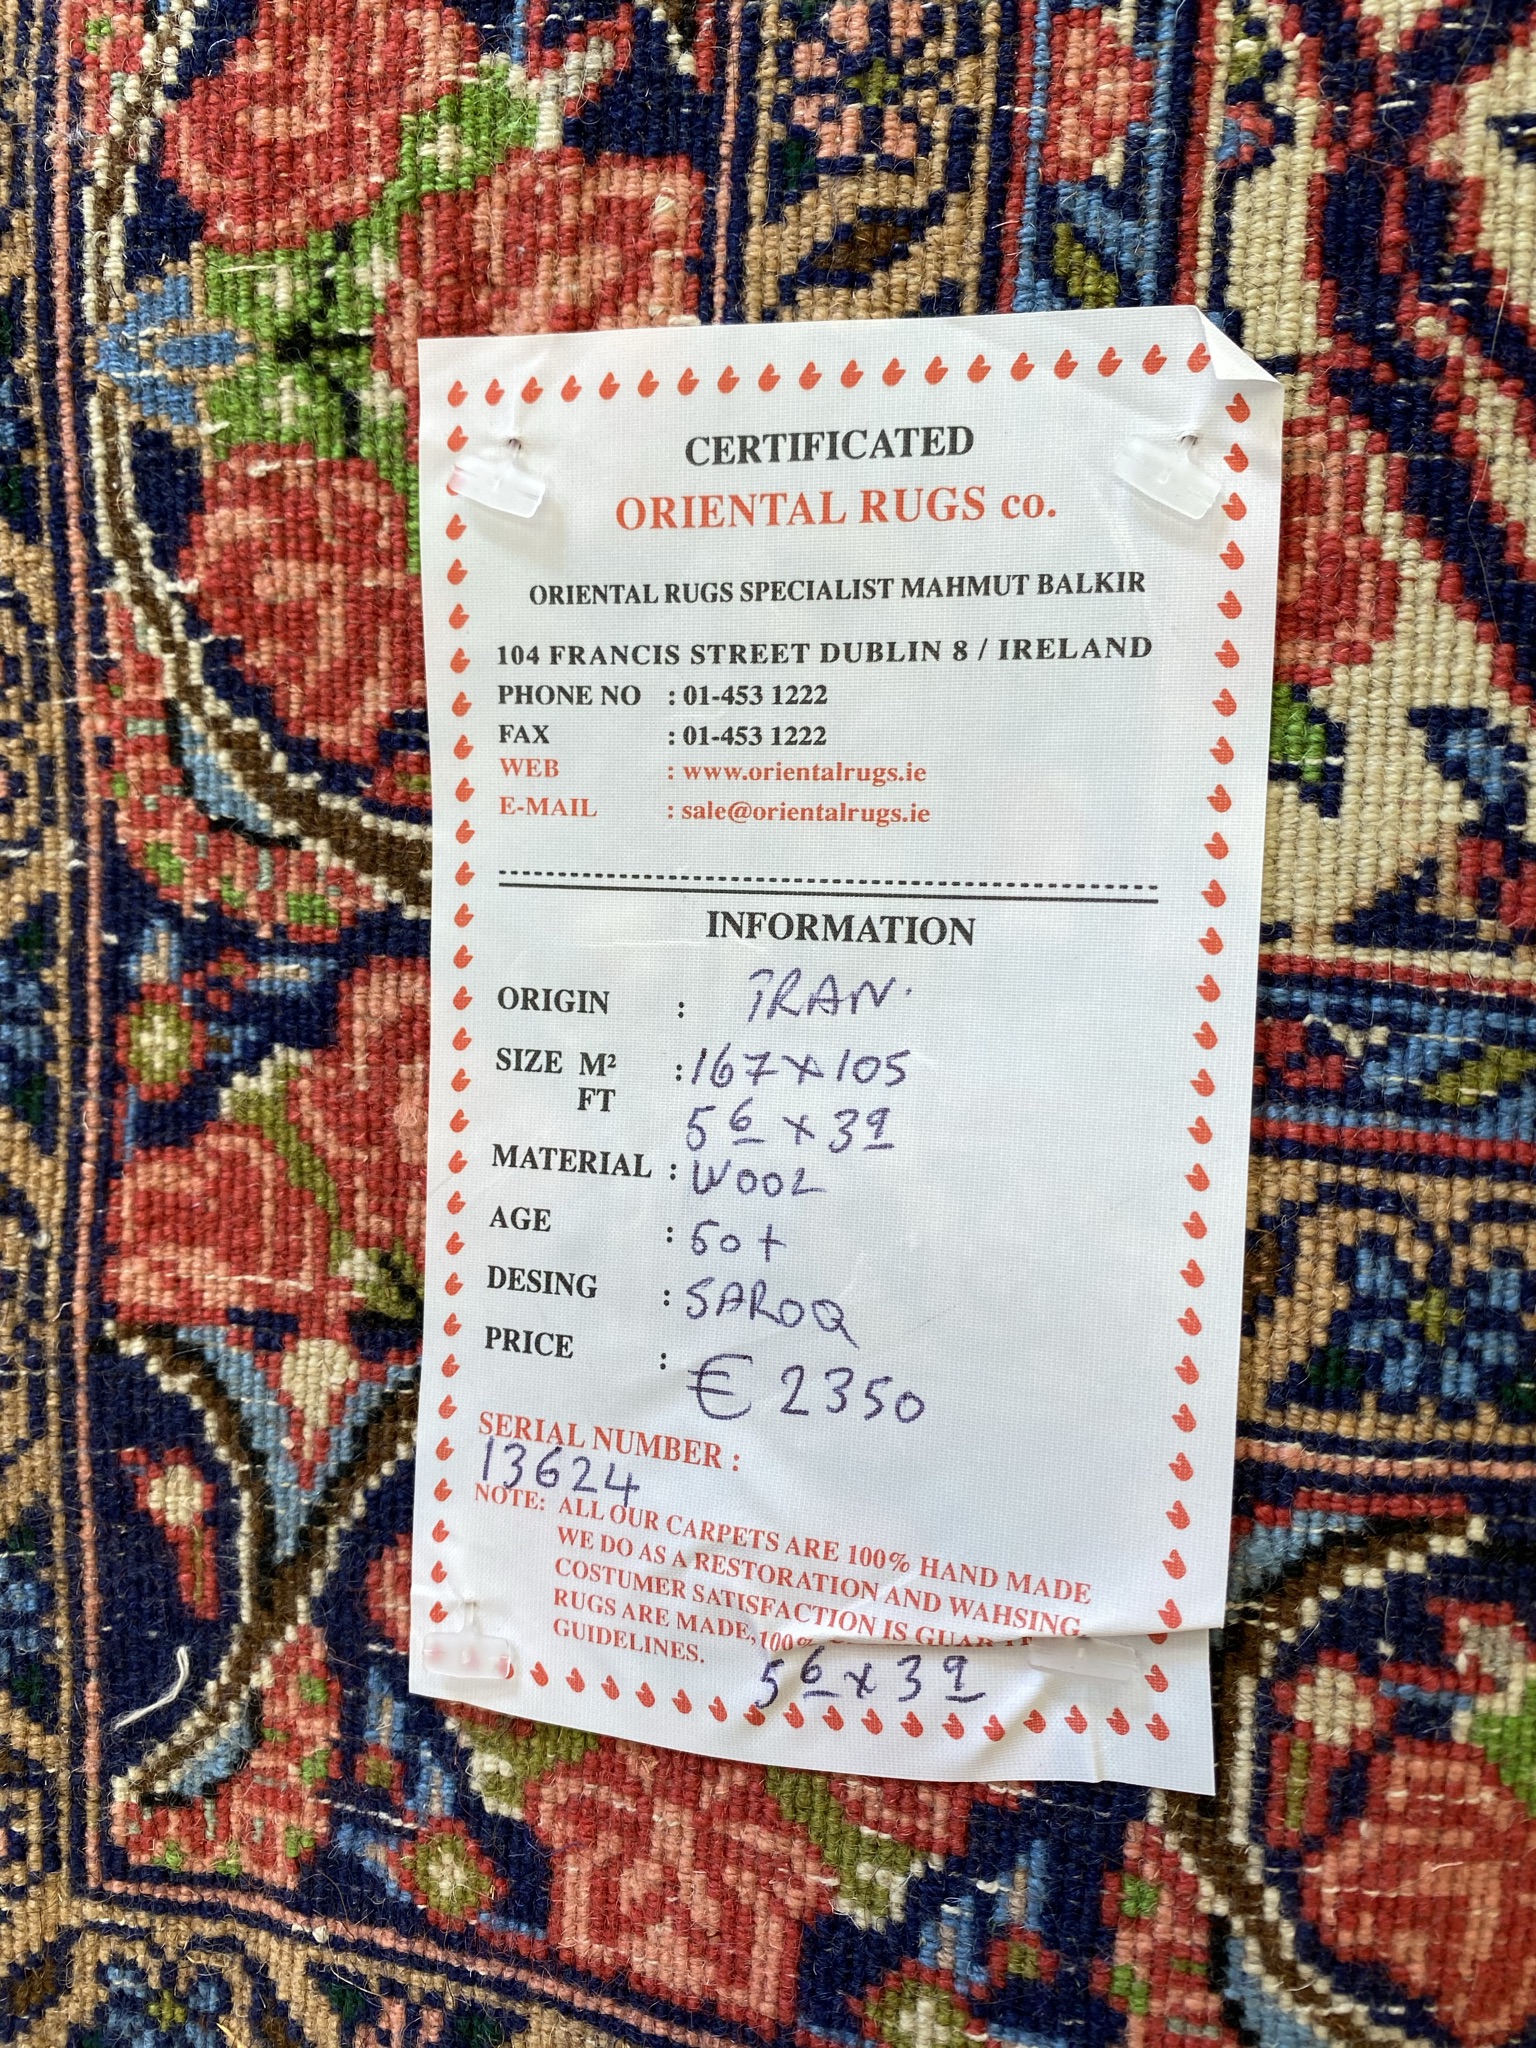 CERTIFICATED
ORIENTAL RUGS co.
ORIENTAL RUGS SPECIALIST MAHMUT BALKIR
104 FRANCIS STREET DUBLIN 8 / IRELAND
PHONE NO : 01-453 1222
FAX : 01-453 1222
WEB : www.orientalrugs.ie
E-MAIL : sale@orientalrugs.ie
INFORMATION
ORIGIN : IRAN.
SIZE M² : 167 x 105
FT 5 6 x 3 9
MATERIAL : WOOL
AGE : 60+
DESING : SAROQ
PRICE : € 2350
SERIAL NUMBER :
13624
NOTE: ALL OUR CARPETS ARE 100% HAND MADE
WE DO AS A RESTORATION AND WAHSING.
COSTUMER SATISFACTION IS
RUGS ARE MADE, 100%
GUIDELINES.
5 6 x 3 9